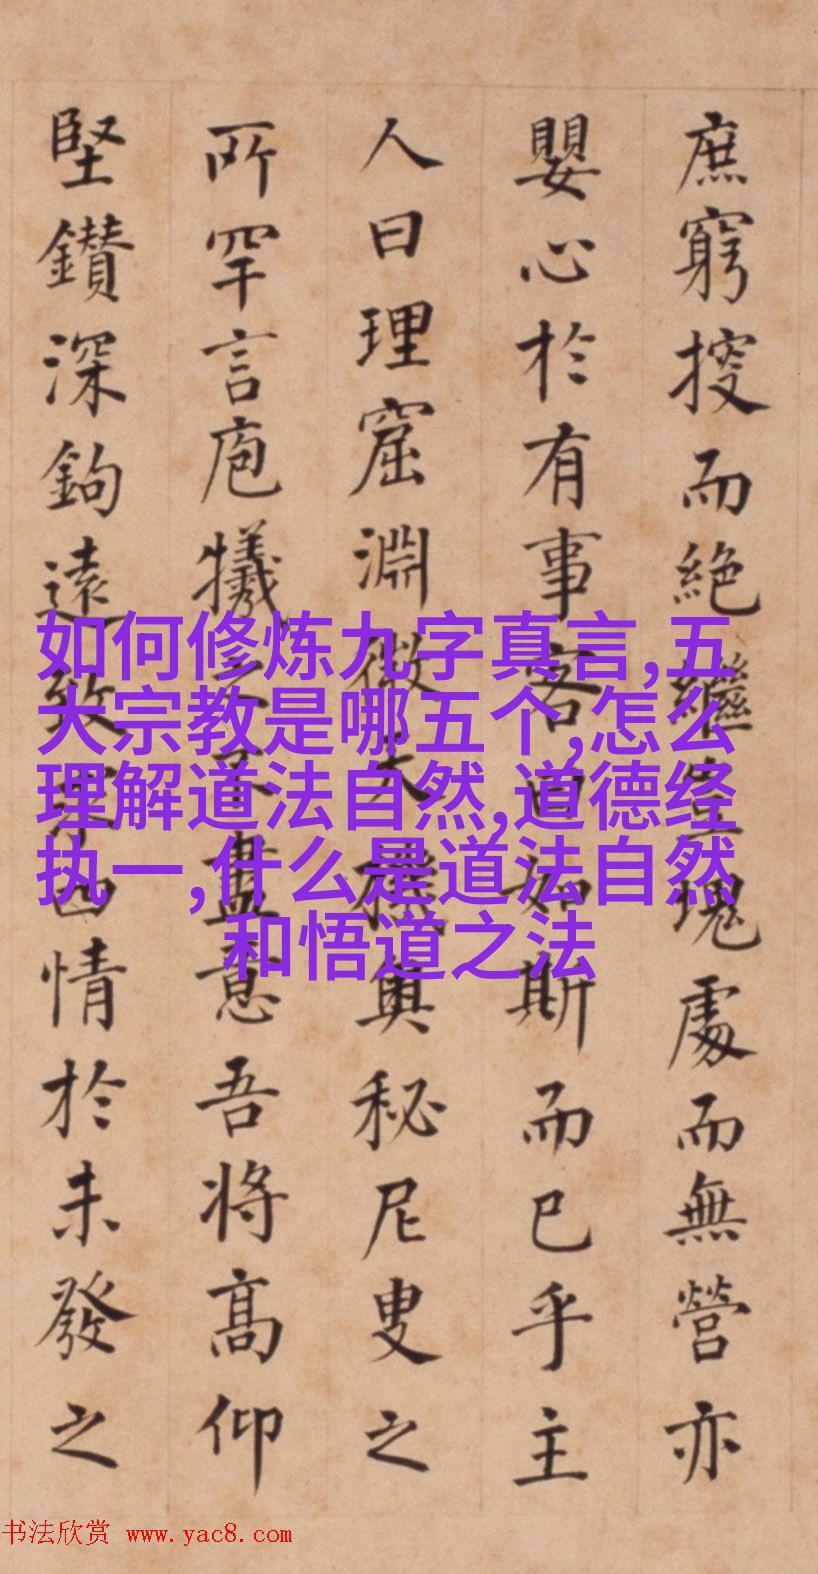 庶窮而絶繼坐塊處而無營亦
嬰心於有事客曰如斯而已乎主
人曰理窟淵微大奧秘尼叟之
所罕言庖犧之不盡意吾将高仰
堅鑚深鉤遠致四情於未發之
如何修炼九字真言,五
大宗教是哪五个,怎么
理解道法自然,道德经
执一,什么是道法自然
和悟道之法
书法欣赏 www.yac8.com